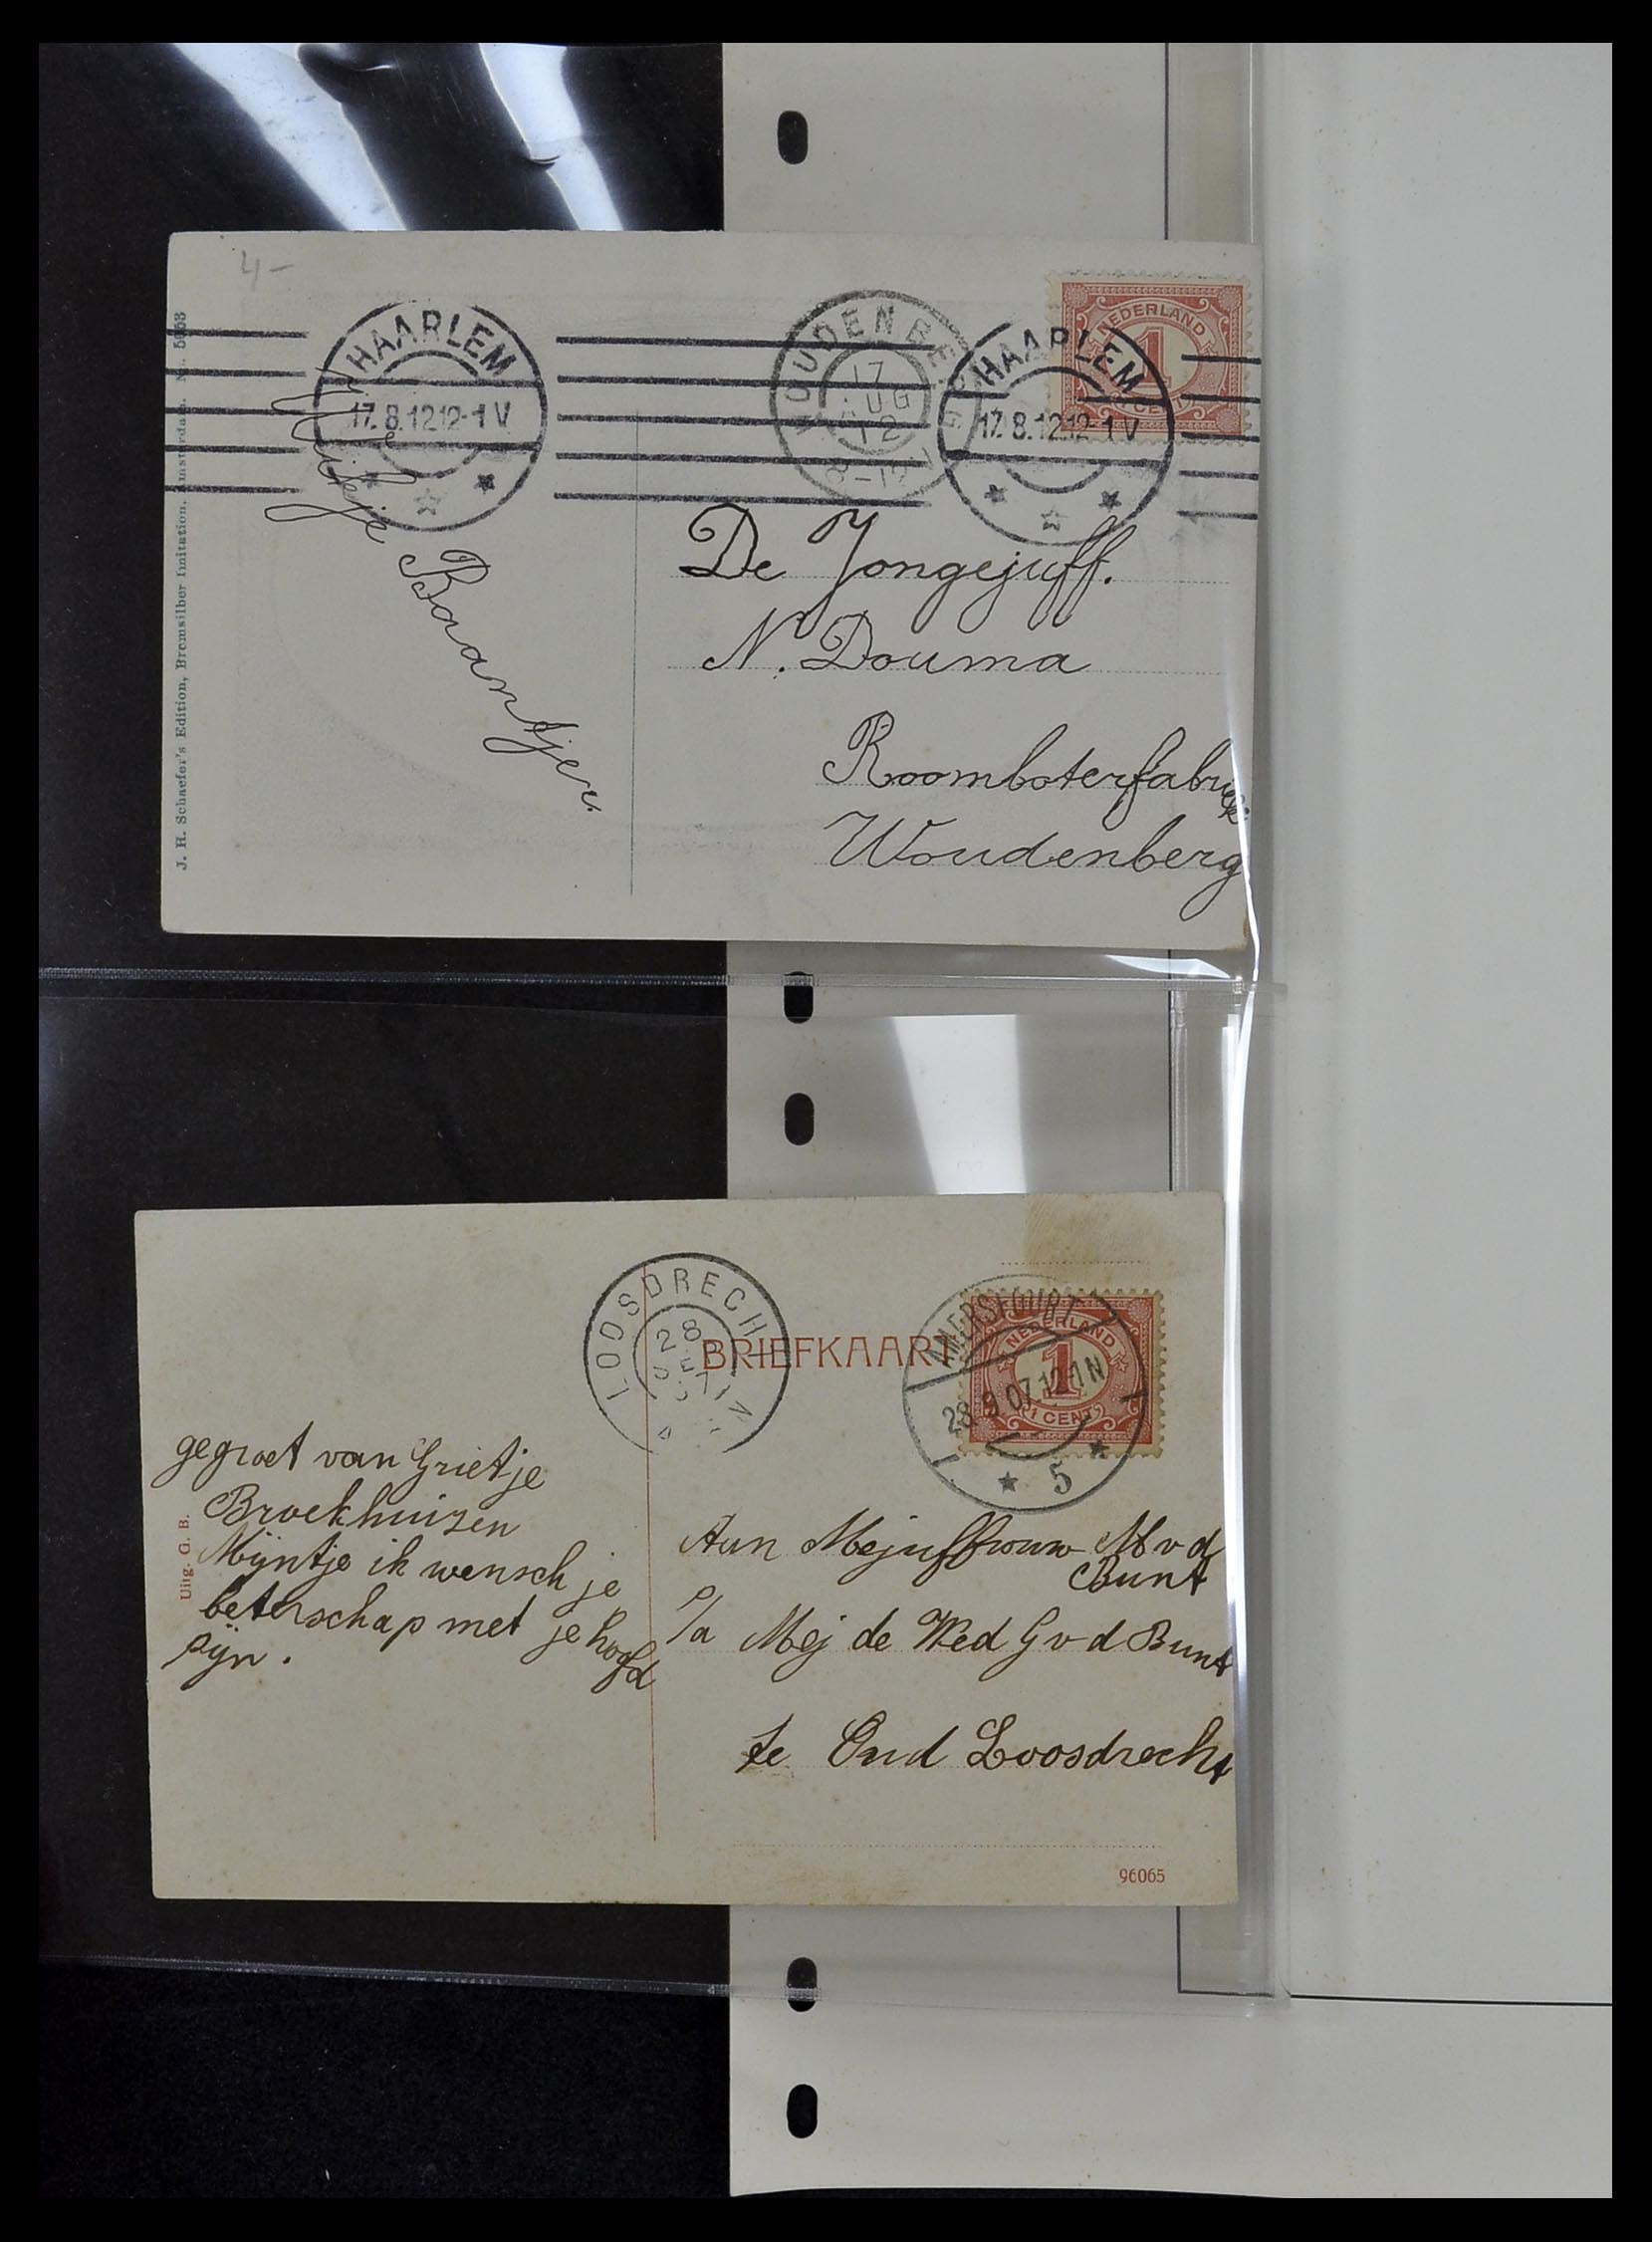 4-
HAARLEM
17.8.12 12-1 V
WOUDENBE
17
AUG
12
HAARLEM
17.8.12 12-1 V
NEDERLAND
1
1 CENT
J. H. Schaefer's Edition, Bremsilber Imitation, Amsterdam.
Baantjer.
De Jongejuff.
N. Douma
Roomboterfabriek
Woudenberg
LOOSDRECHT
28
SEP
BRIEFKAART
AMERSFOORT
28.9.07.12-1N
5
NEDERLAND
1
1 CENT
gegroet van Grietje
Broekhuizen
Mijntje ik wensch je
beterschap met je hoofd
pijn.
Uitg. G. B.
Aan Mejuffrouw M v d
Bunt
p/a Mej de Wed G v d Bunt
te Oud Loosdrecht
96065